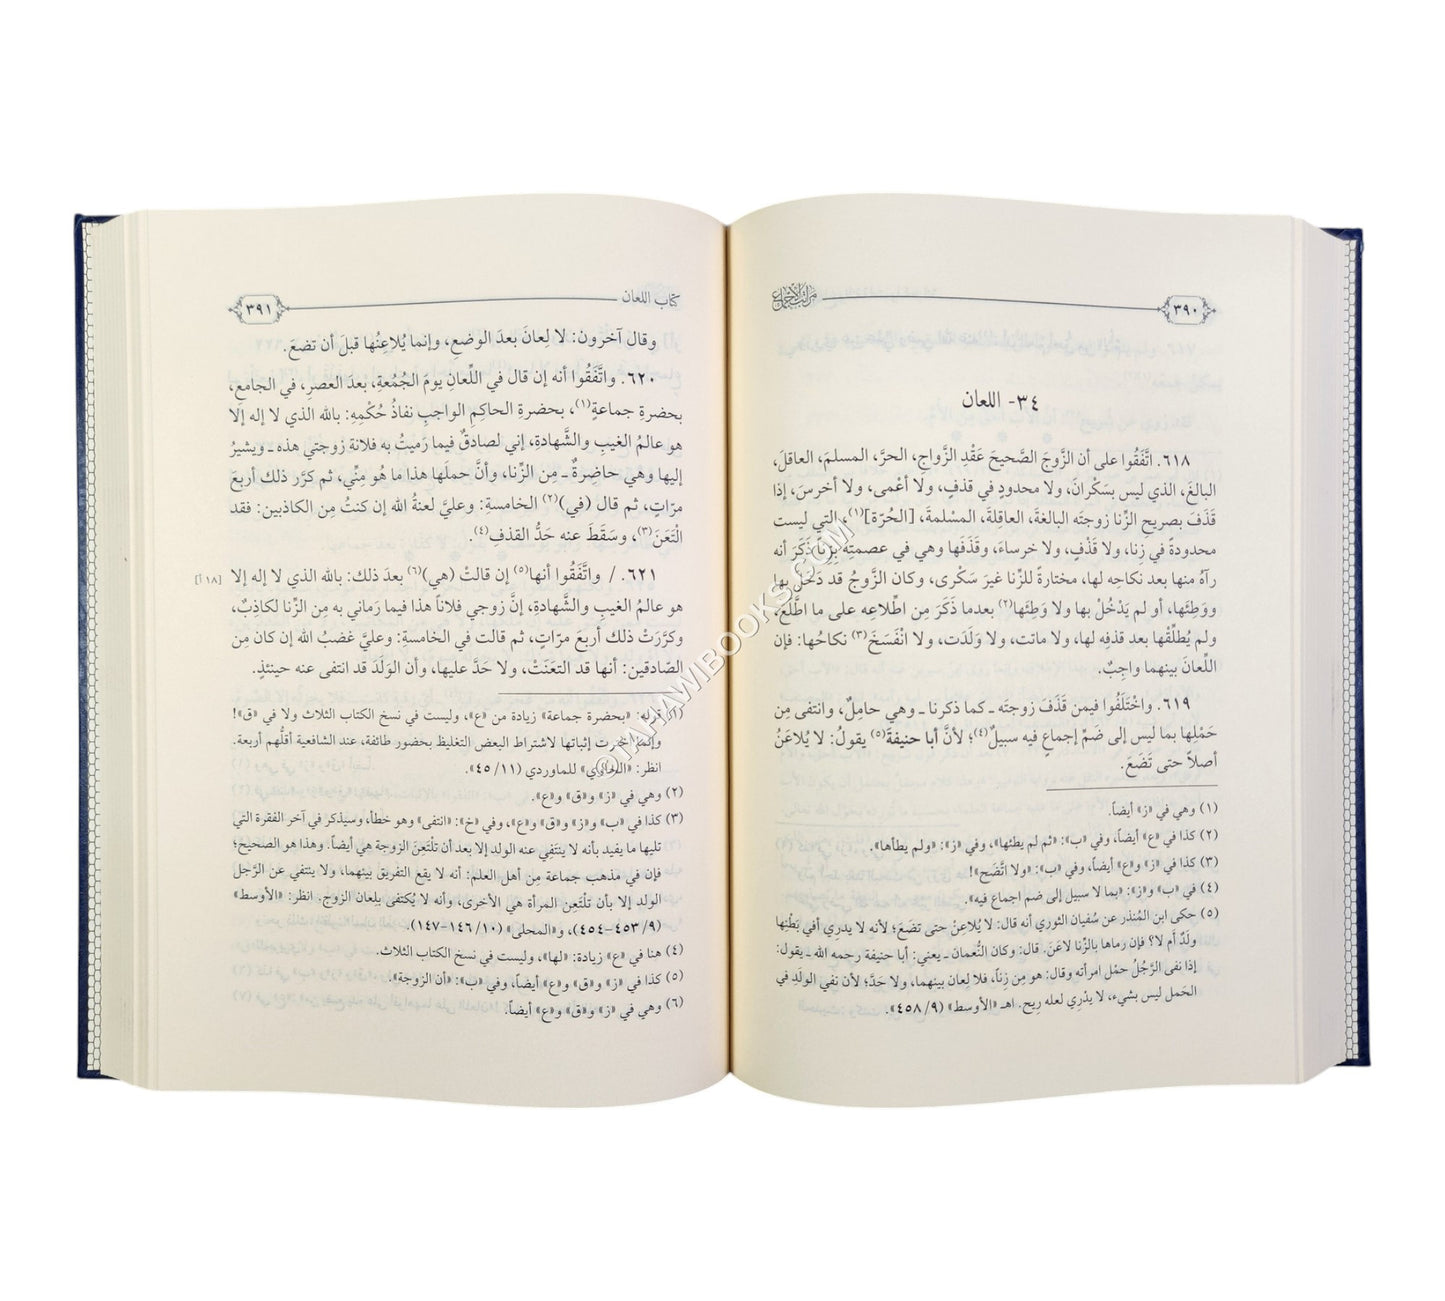 مراتب الإجماع ٣٩٠
٣٤- اللعان
٦١٨. اتَّفَقُوا على أن الزَّوجَ الصَّحيحَ عَقْدِ الزَّواجِ، الحرَّ، المسلمَ، العاقلَ،
البالغَ، الذي ليس بسَكْرانَ، ولا محدودٍ في قذفٍ، ولا أعْمى، ولا أخرسَ، إذا
قَذَفَ بصريحِ الزِّنا زوجتَه البالغةَ، العاقِلةَ، المسْلمةَ، [الحُرّة](١)، التي ليست
محدودةً في زِنا، ولا قَذْفٍ، ولا خرساءَ، وقَذَفَها وهي في عصمتِه بِزِنا ذَكَرَ أنه
رآهُ منها بعد نكاحِه لها، مختارةً للزِّنا غيرَ سَكْرى، وكان الزَّوجُ قد دَخَلَ بها
ووَطِئَها، أو لم يَدْخُلْ بها ولا وَطِئَها(٢) بعدما ذَكَرَ مِن اطِّلاعِه على ما اطَّلَعَ،
ولم يُطلِّقْها بعد قذفِه لها، ولا ماتت، ولا وَلَدَت، ولا انْفَسَخَ(٣) نكاحُها: فإن
اللِّعانَ بينهما واجِبٌ.
٦١٩. واخْتَلَفُوا فيمن قَذَفَ زوجتَه ـ كما ذكرنا ـ وهي حامِلٌ، وانتفى مِن
حَمْلِها بما ليس إلى ضَمِّ إجماعٍ فيه سبيلٌ(٤)؛ لأنَّ أبا حنيفةَ(٥) يقولُ: لا يُلاعَنُ
أصلاً حتى تَضَعَ.
(١) وهي في «ز» أيضاً.
(٢) كذا في «ع» أيضاً، وفي «ب»: «ثم لم يطئها»، وفي «ز»: «ولم يطأها».
(٣) كذا في «ز» و«ع» أيضاً، وفي «ب»: «ولا اتَّضَح»!
(٤) في «ب» و«ز»: «بما لا سبيل إلى ضم اجماع فيه».
(٥) حكى ابن المُنذر عن سُفيان الثوري أنه قال: لا يُلاعنْ حتى تضَعَ؛ لأنه لا يدرِي أفي بَطْنِها
ولَدٌ أم لا؟ فإن رماها بالزِّنا لاعَنَ. قال: وكان النُّعمان ـ يعني: أبا حنيفة رحمه الله ـ يقول:
إذا نفى الرَّجُلُ حمْل امرأته وقال: هو مِن زِناً، فلا لِعان بينهما، ولا حَدَّ؛ لأن نفي الولَدِ في
الحَمل ليس بشيء، لا يدْرِي لعله رِيح. اهـ «الأوسط» (٤٥٨/٩).
كتاب اللعان ٣٩١
وقال آخرون: لا لِعانَ بعدَ الوضعِ، وإنما يُلاعِنُها قبلَ أن تضعَ.
٦٢٠. واتَّفَقُوا أنه إن قال في اللِّعانِ يومَ الجُمُعة، بعدَ العصرِ، في الجامعِ،
بحضرةِ جماعةٍ(١)، بحضرةِ الحاكِمِ الواجبِ نفاذُ حُكْمِهِ: بالله الذي لا إله إلا
هو عالمُ الغيبِ والشَّهادةِ، إني لصادقٌ فيما رَميتُ به فلانة زوجتي هذه ـ ويشيرُ
إليها وهي حاضِرةٌ ـ مِن الزِّنا، وأنَّ حملَها هذا ما هُو مِنِّي، ثم كرَّر ذلك أربعَ
مرّاتٍ، ثم قال (في)(٢) الخامسةِ: وعليَّ لعنةُ الله إن كنتُ مِن الكاذبين: فقد
الْتَعَنَ(٣)، وسَقَطَ عنه حَدُّ القذفِ(٤).
٦٢١. / واتَّفَقُوا أنها(٥) إن قالتْ (هي)(٦) بعدَ ذلك: بالله الذي لا إله إلا [١٨أ]
هو عالمُ الغيبِ والشَّهادةِ، إنَّ زوجي فلاناً هذا فيما رَماني به مِن الزِّنا لكاذِبٌ،
وكرَّرَتْ ذلك أربعَ مرّاتٍ، ثم قالت في الخامسةِ: وعليَّ غضبُ الله إن كان مِن
الصّادقين: أنها قد التعَنَتْ، ولا حَدَّ عليها، وأن الوَلَدَ قد انتفى عنه حينئذٍ.
(١) قوله: «بحضرة جماعة» زيادة من «ع»، وليست في نسخ الكتاب الثلاث ولا في «ق»!
وإنما اخترت إثباتها لاشتراط البعض التغليظ بحضور طائفة، عند الشافعية أقلُّهم أربعة.
انظر: «الحاوي» للماوردي (٤٥/١١).
(٢) وهي في «ز» و«ق» و«ع».
(٣) كذا في «ب» و«ز» و«ق» و«ع»، وفي «خ»: «انتفى» وهو خطأ، وسيذكر في آخر الفقرة التي
تليها ما يفيد بأنه لا ينتَفِي عنه الولد إلا بعد أن تلْتَعِنَ الزوجة هي أيضاً. وهذا هو الصحيح؛
فإن في مذهب جماعة مِن أهل العلم: أنه لا يقع التفريق بينهما، ولا ينتفي عن الرَّجل
الولد إلا بأن تلْتَعِن المرأة هي الأخرى، وأنه لا يُكتفى بلعان الزوج. انظر: «الأوسط»
(٤٥٣/٩-٤٥٤)، و«المحلى» (١٤٦/١٠-١٤٧).
(٤) هنا في «ع» زيادة: «لها»، وليست في نسخ الكتاب الثلاث.
(٥) كذا في «ز» و«ق» و«ع» أيضاً، وفي «ب»: «أن الزوجة».
(٦) وهي في «ز» و«ق» و«ع» أيضاً.
©TAHAWIBOOKS.COM